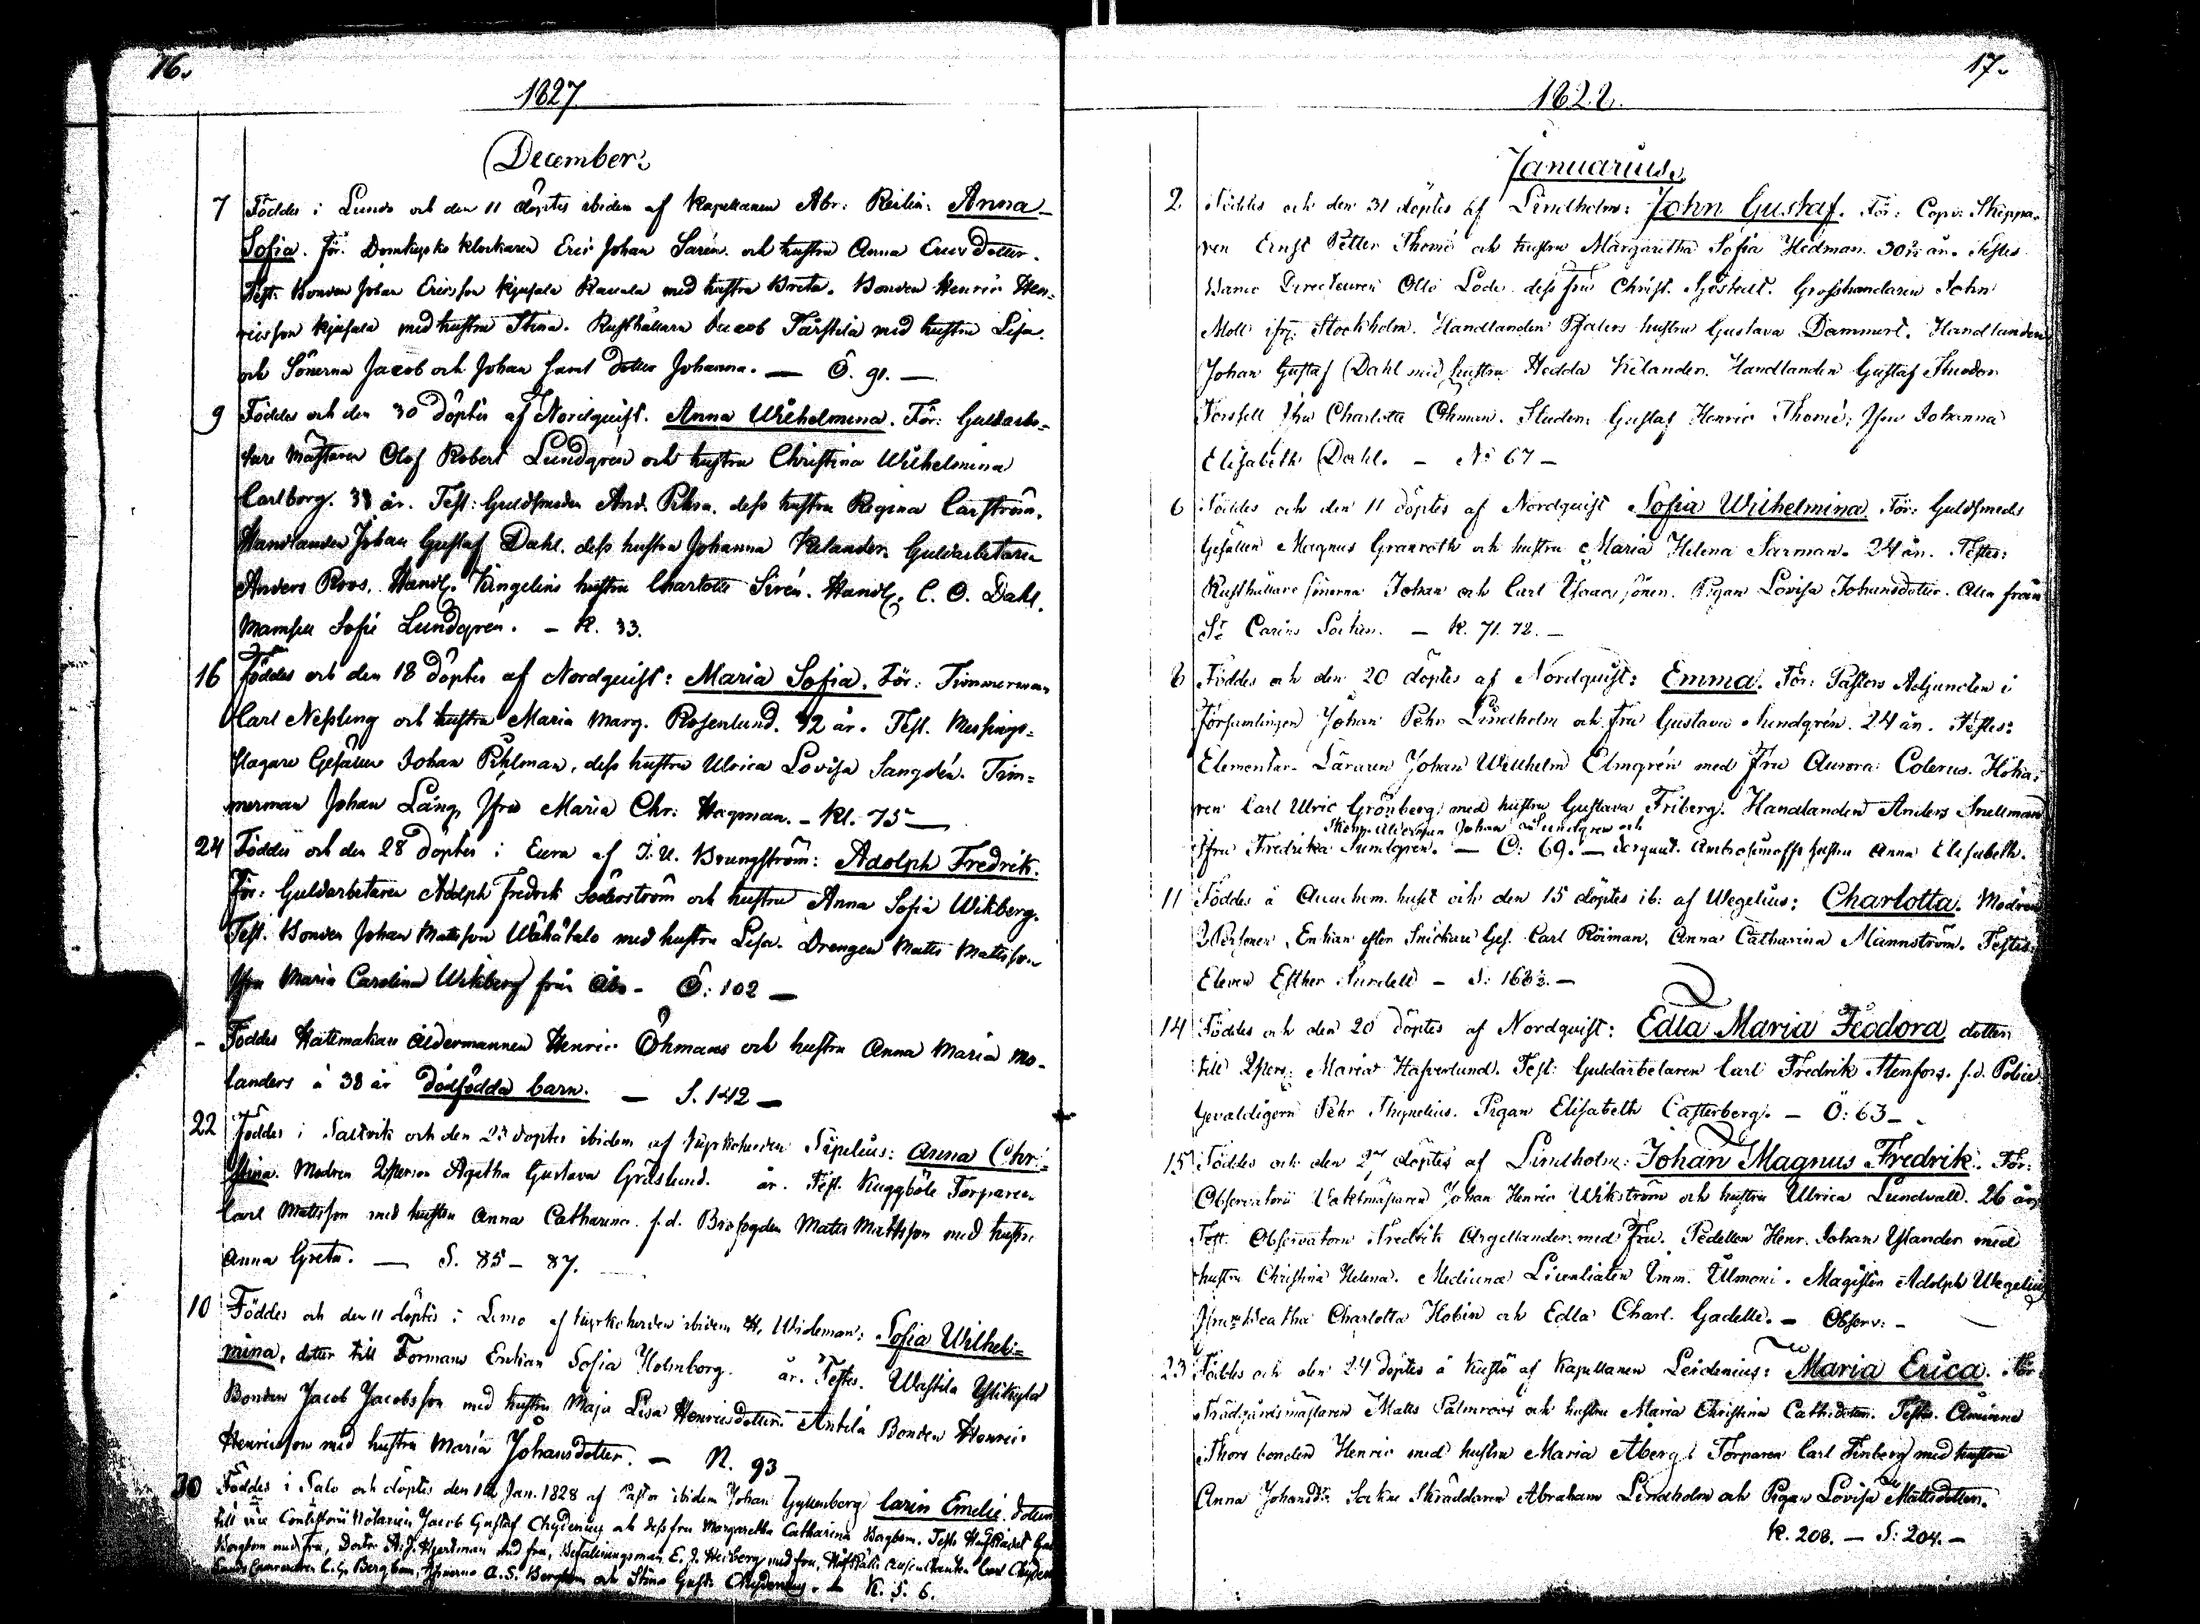 16.
1827
December.
7 Föddes i Lundo och den 11 döptes ibidem af Kapellanen Abr. Reilin: Anna
Sofia. För. Domkyrko klockaren Eric Johan Sarén och hustru Anna Ericsdotter.
Test. Bonden Johan Ericsson Kjusala med hustru Breta. Bonden Henric Hen-
ricsson Kjusala med hustru Stina. Rusthållaren Jacob Tårstila med hustru Lisa.
och Sönerna Jacob och Johan samt dotter Johanna. — Ö. 91. —
9 Föddes och den 30 döptes af Nordquist. Anna Wilhelmina. För: Guldarbe-
tare Mästaren Olof Robert Lundgrén och hustru Christina Wilhelmina
Carlborg. 38 år. Test: Guldsmeden And. dess hustru Regina Carström.
Handlanden Johan Gustaf Dahl, dess hustru Johanna Kelander. Guldarbetaren
Anders Roos. Handl. Kingelins hustru Charlotte Sirén. Handl. C. O. Dahl.
Mamsell Sofie Lundgrén. — K. 33.
16 Föddes och den 18 döptes af Nordquist: Maria Sofia. För: Timmerman
Carl Nessling och hustru Maria Marg. Rosenlund. 42 år. Test. Messings-
slagare Gesällen Johan Pihlman, dess hustru Ulrica Lovisa Sangdén. Tim-
merman Johan Lång, Jfru Maria Chr: Hagman. — Kl. 75 —
24 Föddes och den 28 döptes i Eura af J. U. Brungström: Adolph Fredrik.
För: Guldarbetaren Adolph Fredrik Söderström och hustru Anna Sofia Wikberg.
Test. Bonden Johan Mattsson med hustru Lisa. Drengen Matts Mattsson
Jfru Maria Carolina Wikberg från Åbo — Ö: 102 —
- Föddes Hattmakare Åldermannen Henric Öhmans och hustru Anna Maria Mo-
landers à 38 år dödfödda barn. — S. 142 —
22 Föddes i Saltvik och den 23 döptes ibidem af Kyrkoherden Sipelius: Anna Chri-
stina. Modren Qperson Agatha Gustava Gräslund. år. Test. Kuggböle Torparen
Carl Mattsson med hustru Anna Catharina. f.d. Brofogden Matts Mattsson med hustru
Anna Greta. — S. 85 — 87.
10 Föddes och den 11 döptes i Lemo af Kyrkoherden ibidem H. Wideman: Sofia Wilhel-
mina, dotter till Formans Enkian Sofia Holmborg. år. Testes. Wastila
Bonden Jacob Jacobsson med hustru Maja Lisa Henricsdotter. Anttila Bonden Henric
Henricsson med hustru Maria Johansdotter. — N. 93
30 Föddes i Salo och döptes den 1 Jan. 1828 af Pastor ibidem Johan Gyllenborg Carin Emelie. dotter
till vice Consistorii Notarien Jacob Gustaf Chydenius och dess fru Margaretha Catharina Bergbom. Testes
Bergbom med fru, Doctor A. J. Hjertman med fru, Befallningsman E. J. Heiberg med fru, Carl
C. G. Bergbom, A. S. Bergbom och Stina Gust. Chydenius. — K. S. 6.
17.
1828.
Januarius.
2 Föddes och den 31 döptes af Lindholm: John Gustaf. För: Copv: Skeppa-
ren Ernst Petter Thomé och hustru Margaretha Sofia Hedman. 30 år. Testes
Banco Directeuren Otto Lode dess fru Christ. Sjöstedt. Grosshandaren John
Moll ifr. Stockholm. Handlanden Pfalers hustru Gustava Dammert. Handlanden
Johan Gustaf Dahl med hustru Hedda Kelander. Handlanden Gustaf Theodor
Forssell Jfru Charlotte Öhman. Studen: Gustaf Henric Thomé; Jfru Johanna
Elisabeth Dahl. — No 67 —
6 Föddes och den 11 döptes af Nordquist Sofia Wilhelmina. För: Guldsmeds
Gesällen Magnus Granroth och hustru Maria Helena Sarman. 24 år. Testes:
Rusthållare sönerna Johan och Carl Isacssöner. Pigan Lovisa Johansdotter. Alla från
St Carins Socken. — K. 71. 72. —
8 Föddes och den 20 döptes af Nordquist: Emma. För: Pastors Adjuncten i
Församlingen Johan Pehr Lindholm och fru Gustava Sundgrén. 24 år. Testes:
Elementar-Läraren Johan Wilhelm Elmgrén med Fru Aurora Colerus.
ren Carl Ulric Grönberg med hustru Gustava Friberg. Handlanden Anders Snellman
Skepp. Ålderman Johan Sundgren och
Jfru Fredrika Sundgren. — Ö: 69. — Sergeant. Ambrosimoffs hustru Anna Elisabeth.
11 Föddes å huset och den 15 döptes ib: af Wegelius: Charlotta. Modren
Qvpersonen, Enkian efter Snickare Ges. Carl Röiman, Anna Catharina Männström. Testes:
Eleven Esther Sundell — S: 168½. —
14 Föddes och den 20 döptes af Nordquist: Edla Maria Feodora, dotter
till Qpers: Maria Hafverlund. Test: Guldarbetaren Carl Fredrik Stenfors. f.d. Police
Gevaldigern Pehr Thynelius. Pigan Elisabeth Casterberg. — Ö: 63 —
15 Föddes och den 27 döptes af Lindholm: Johan Magnus Fredrik. För:
Observatorii Vaktmästaren Johan Henric Wikström och hustru Ulrica Lundvall. 26 år.
Test. Observatorn Fredrik Argellander med Fru. Pedellen Henr. Johan Ylander med
hustru Christina Helena. Medicinæ Licentiaten Imm. Ilmoni. Magistern Adolph Wegelius
Jfrur Beatha Charlotta Hobin och Edla Charl. Gadelli. — Observ: —
23 Föddes och den 24 döptes å Kustö af Kapellanen Leidenius: Maria Erica. För
Trädgårdsmästaren Matts Palmroos och hustru Maria Christina Cathsdotter. Testes. Åminne
Thors bonden Henric med hustru Maria Åberg. Torparen Carl Finberg med hustru
Anna Johansdr. Sockne Skräddaren Abraham Lindholm och Pigan Lovisa Mattsdotter.
K. 208. — S: 204. —